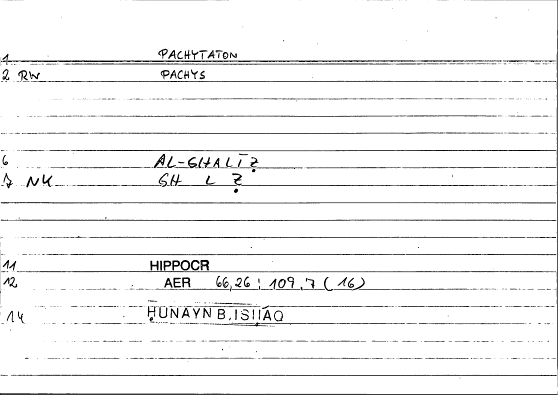 1 PACHYTATON
2 RW PACHYS
6 AL-GHALĪẒ
7 NK GH L Ẓ
11 HIPPOCR
12 AER 66,26 : 109,7 (16)
14 ḤUNAYN B. ISḤĀQ